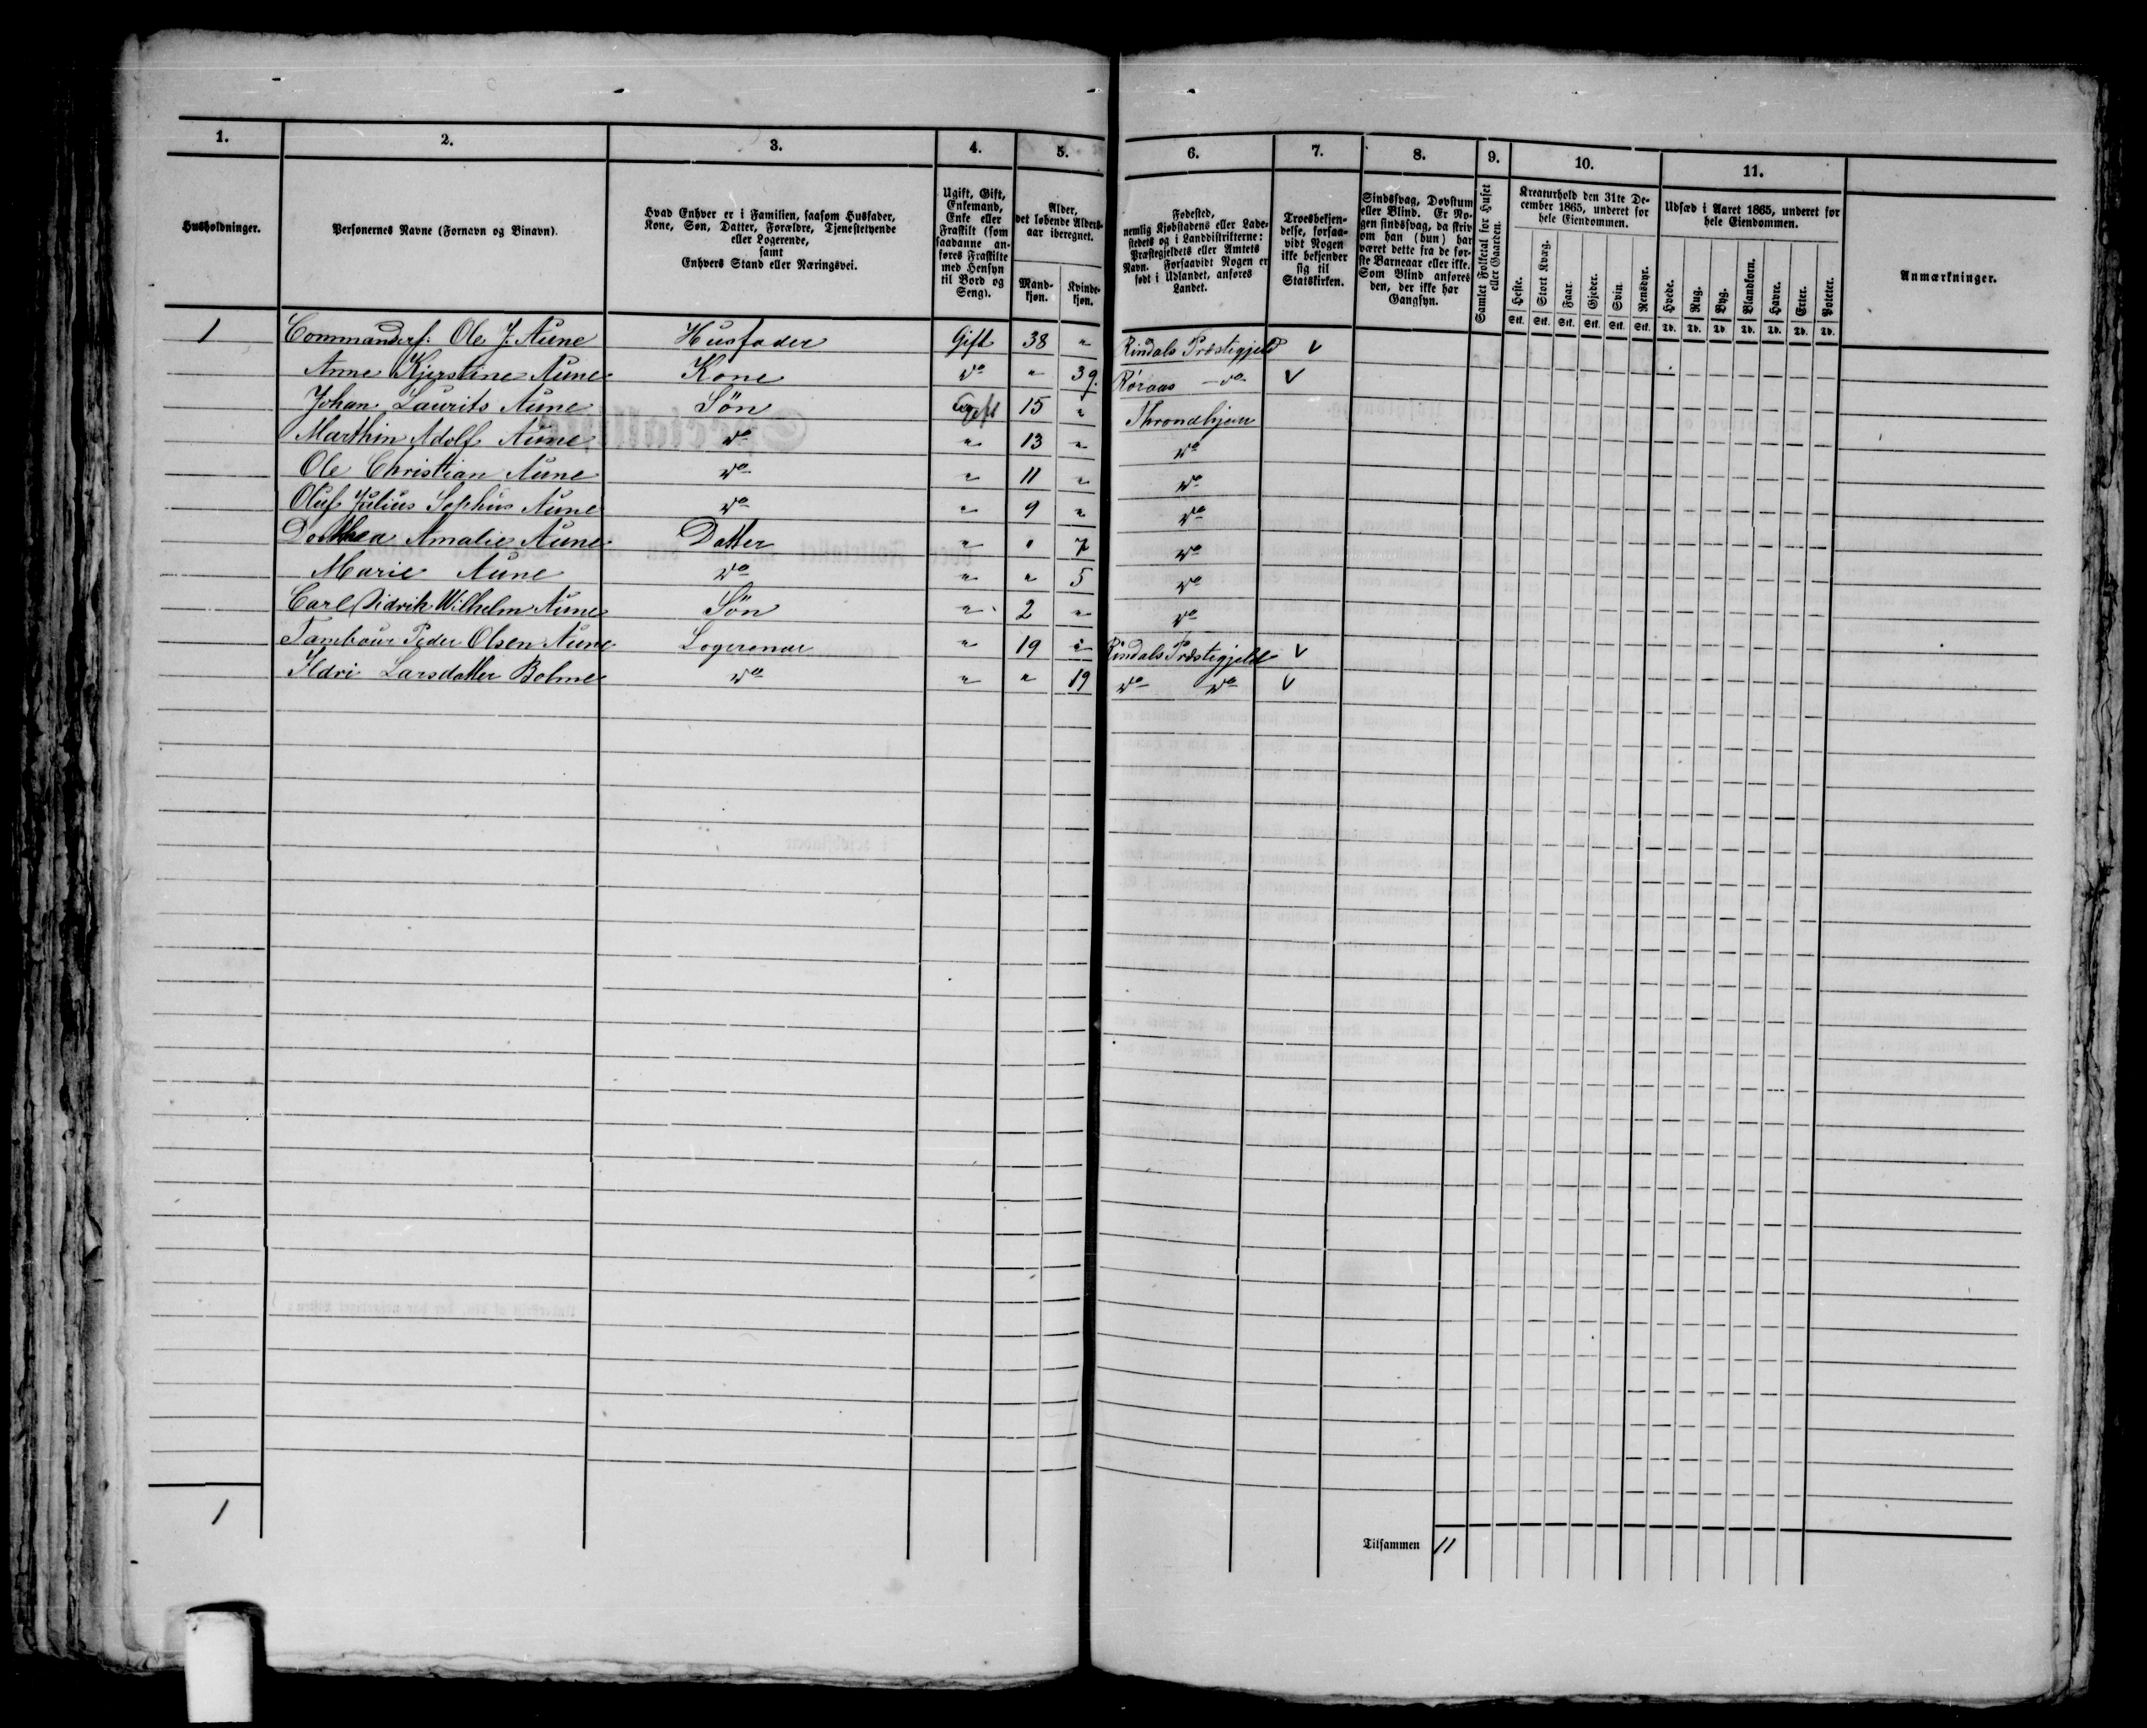 1. 2. 3. 4. 5. 6. 7. 8. 9. 10. 11.
Husholdninger.
Personernes Navne (Fornavn og Binavn).
Hvad Enhver er i Familien, saasom Husfader,
Kone, Søn, Datter, Forældre, Tjenestetyende
eller Logerende,
samt
Enhvers Stand eller Næringsvei.
Ugift, Gift,
Enkemand,
Enke eller
Fraskilt (som
saadanne an-
føres Fraskilte
med Hensyn
til Bord og
Seng).
Alder,
det løbende Alders-
aar iberegnet.
Mand-
kjøn.
Kvinde-
kjøn.
Fødested,
nemlig Kjøbstadens eller Lade-
stedets og i Landdistrikterne:
Præstegjeldets eller Amtets
Navn. Forsaavidt Nogen er
født i Udlandet, anføres
Landet.
Troesbekjen-
delse, forsaa-
vidt Nogen
ikke bekjender
sig til
Statskirken.
Sindssvag, Døvstum
eller Blind. Er No-
gen sindssvag, da skriv
om han (hun) har
været dette fra de før-
ste Barneaar eller ikke.
Som Blind anføres
den, der ikke har
Gangsyn.
Samlet Folketal for Huset
eller Gaarden.
Kreaturhold den 31te De-
cember 1865, underet for
hele Eiendommen.
Heste. Stort Kvæg. Faar. Gjeder. Svin. Rensdyr.
Stk. Stk. Stk. Stk. Stk. Stk.
Udsæd i Aaret 1865, underet for
hele Eiendommen.
Hvede. Rug. Byg. Blandkorn. Havre. Erter. Poteter.
Td. Td. Td. Td. Td. Td. Td.
Anmærkninger.
1 Commanderf. Ole J. Aune Husfader Gift 38 " Rindals Præstigjeld V
Anne Kjerstine Aune Kone do " 39. Røraas do V
Johan Laurits Aune Søn Ugift 15 " Throndhjem
Marthin Adolf Aune do " 13 " do
Ole Christian Aune do " 11 " do
Oluf Julius Sophus Aune do " 9 " do
Dorthea Amalie Aune Datter " " 7 do
Marie Aune do " " 5 do
Carl Didrik Wilhelm Aune Søn " 2 " do
Tambour Peder Olsen Aune Logerende " 19 " Rindals Præstigjeld V
Ildri Larsdatter Bolme do " " 19 do do V
1 Tilsammen 11